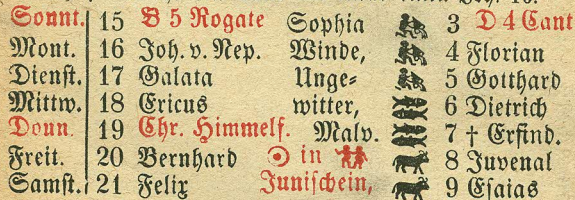 Sonnt. 15 B 5 Rogate Sophia 3 D 4 Cant
Mont. 16 Joh. v. Nep. Winde, 4 Florian
Dienst. 17 Galata Unge- 5 Gotthard
Mittw. 18 Ericus witter, 6 Dietrich
Donn. 19 Chr. Himmelf. Malv. 7 † Erfind.
Freit. 20 Bernhard ☉ in 8 Juvenal
Samst. 21 Felix Junischein, 9 Esaias